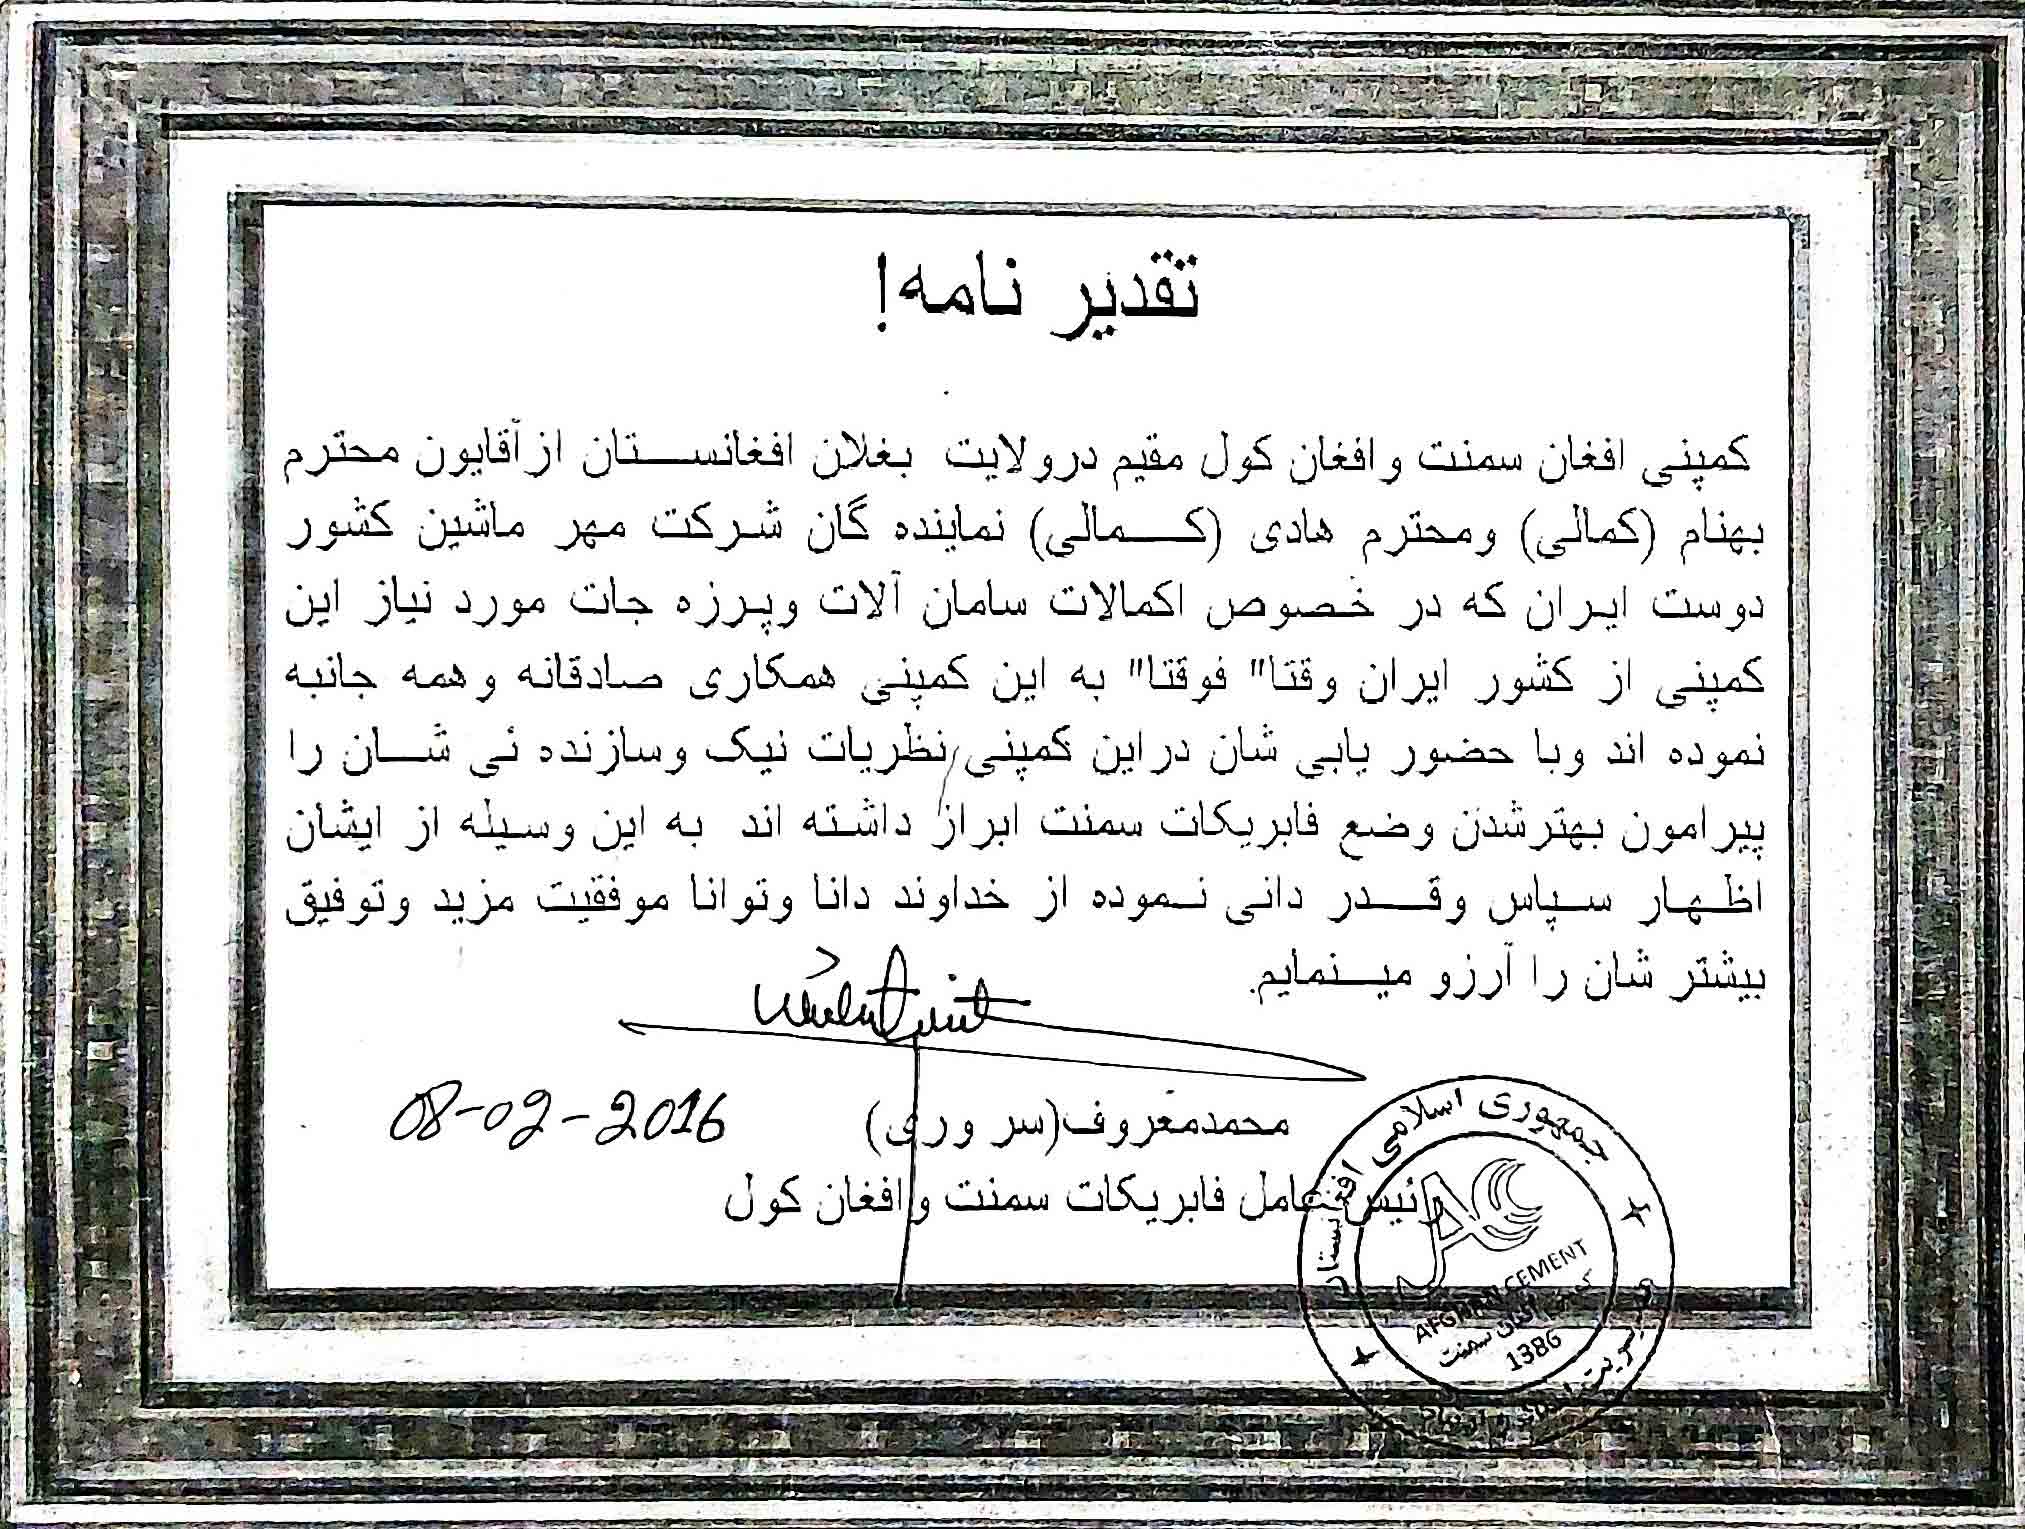 تقدیر نامه!
کمپنی افغان سمنت وافغان کول مقیم درولایت بغلان افغانستان ازآقایون محترم
بهنام (کمالی) ومحترم هادی (کمالی) نماینده گان شرکت مهر ماشین کشور
دوست ایران که در خصوص اکمالات سامان آلات وپرزه جات مورد نیاز این
کمپنی از کشور ایران وقتا" فوقتا" به این کمپنی همکاری صادقانه وهمه جانبه
نموده اند وبا حضور یابی شان دراین کمپنی نظریات نیک وسازنده ئی شان را
پیرامون بهترشدن وضع فابریکات سمنت ابراز داشته اند به این وسیله از ایشان
اظهار سپاس وقدر دانی نموده از خداوند دانا وتوانا موفقیت مزید وتوفیق
بیشتر شان را آرزو مینمایم.
محمدمعروف(سر وری)
08-02-2016
رئیس عامل فابریکات سمنت وافغان کول
جمهوری اسلامی افغانستان
AFGHAN CEMENT
افغان سمنت
1386